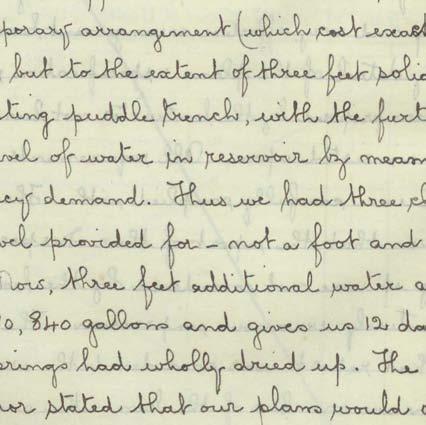 porary arrangement (which cost exac
but to the extent of three feet solid
ting puddle trench, with the furt
vel of water in reservoir by mean
cy demand. Thus we had three c
vel provided for - not a foot and
oors, three feet additional water a
0, 840 gallons and gives us 12 da
rings had wholly dried up. The
or stated that our plans would